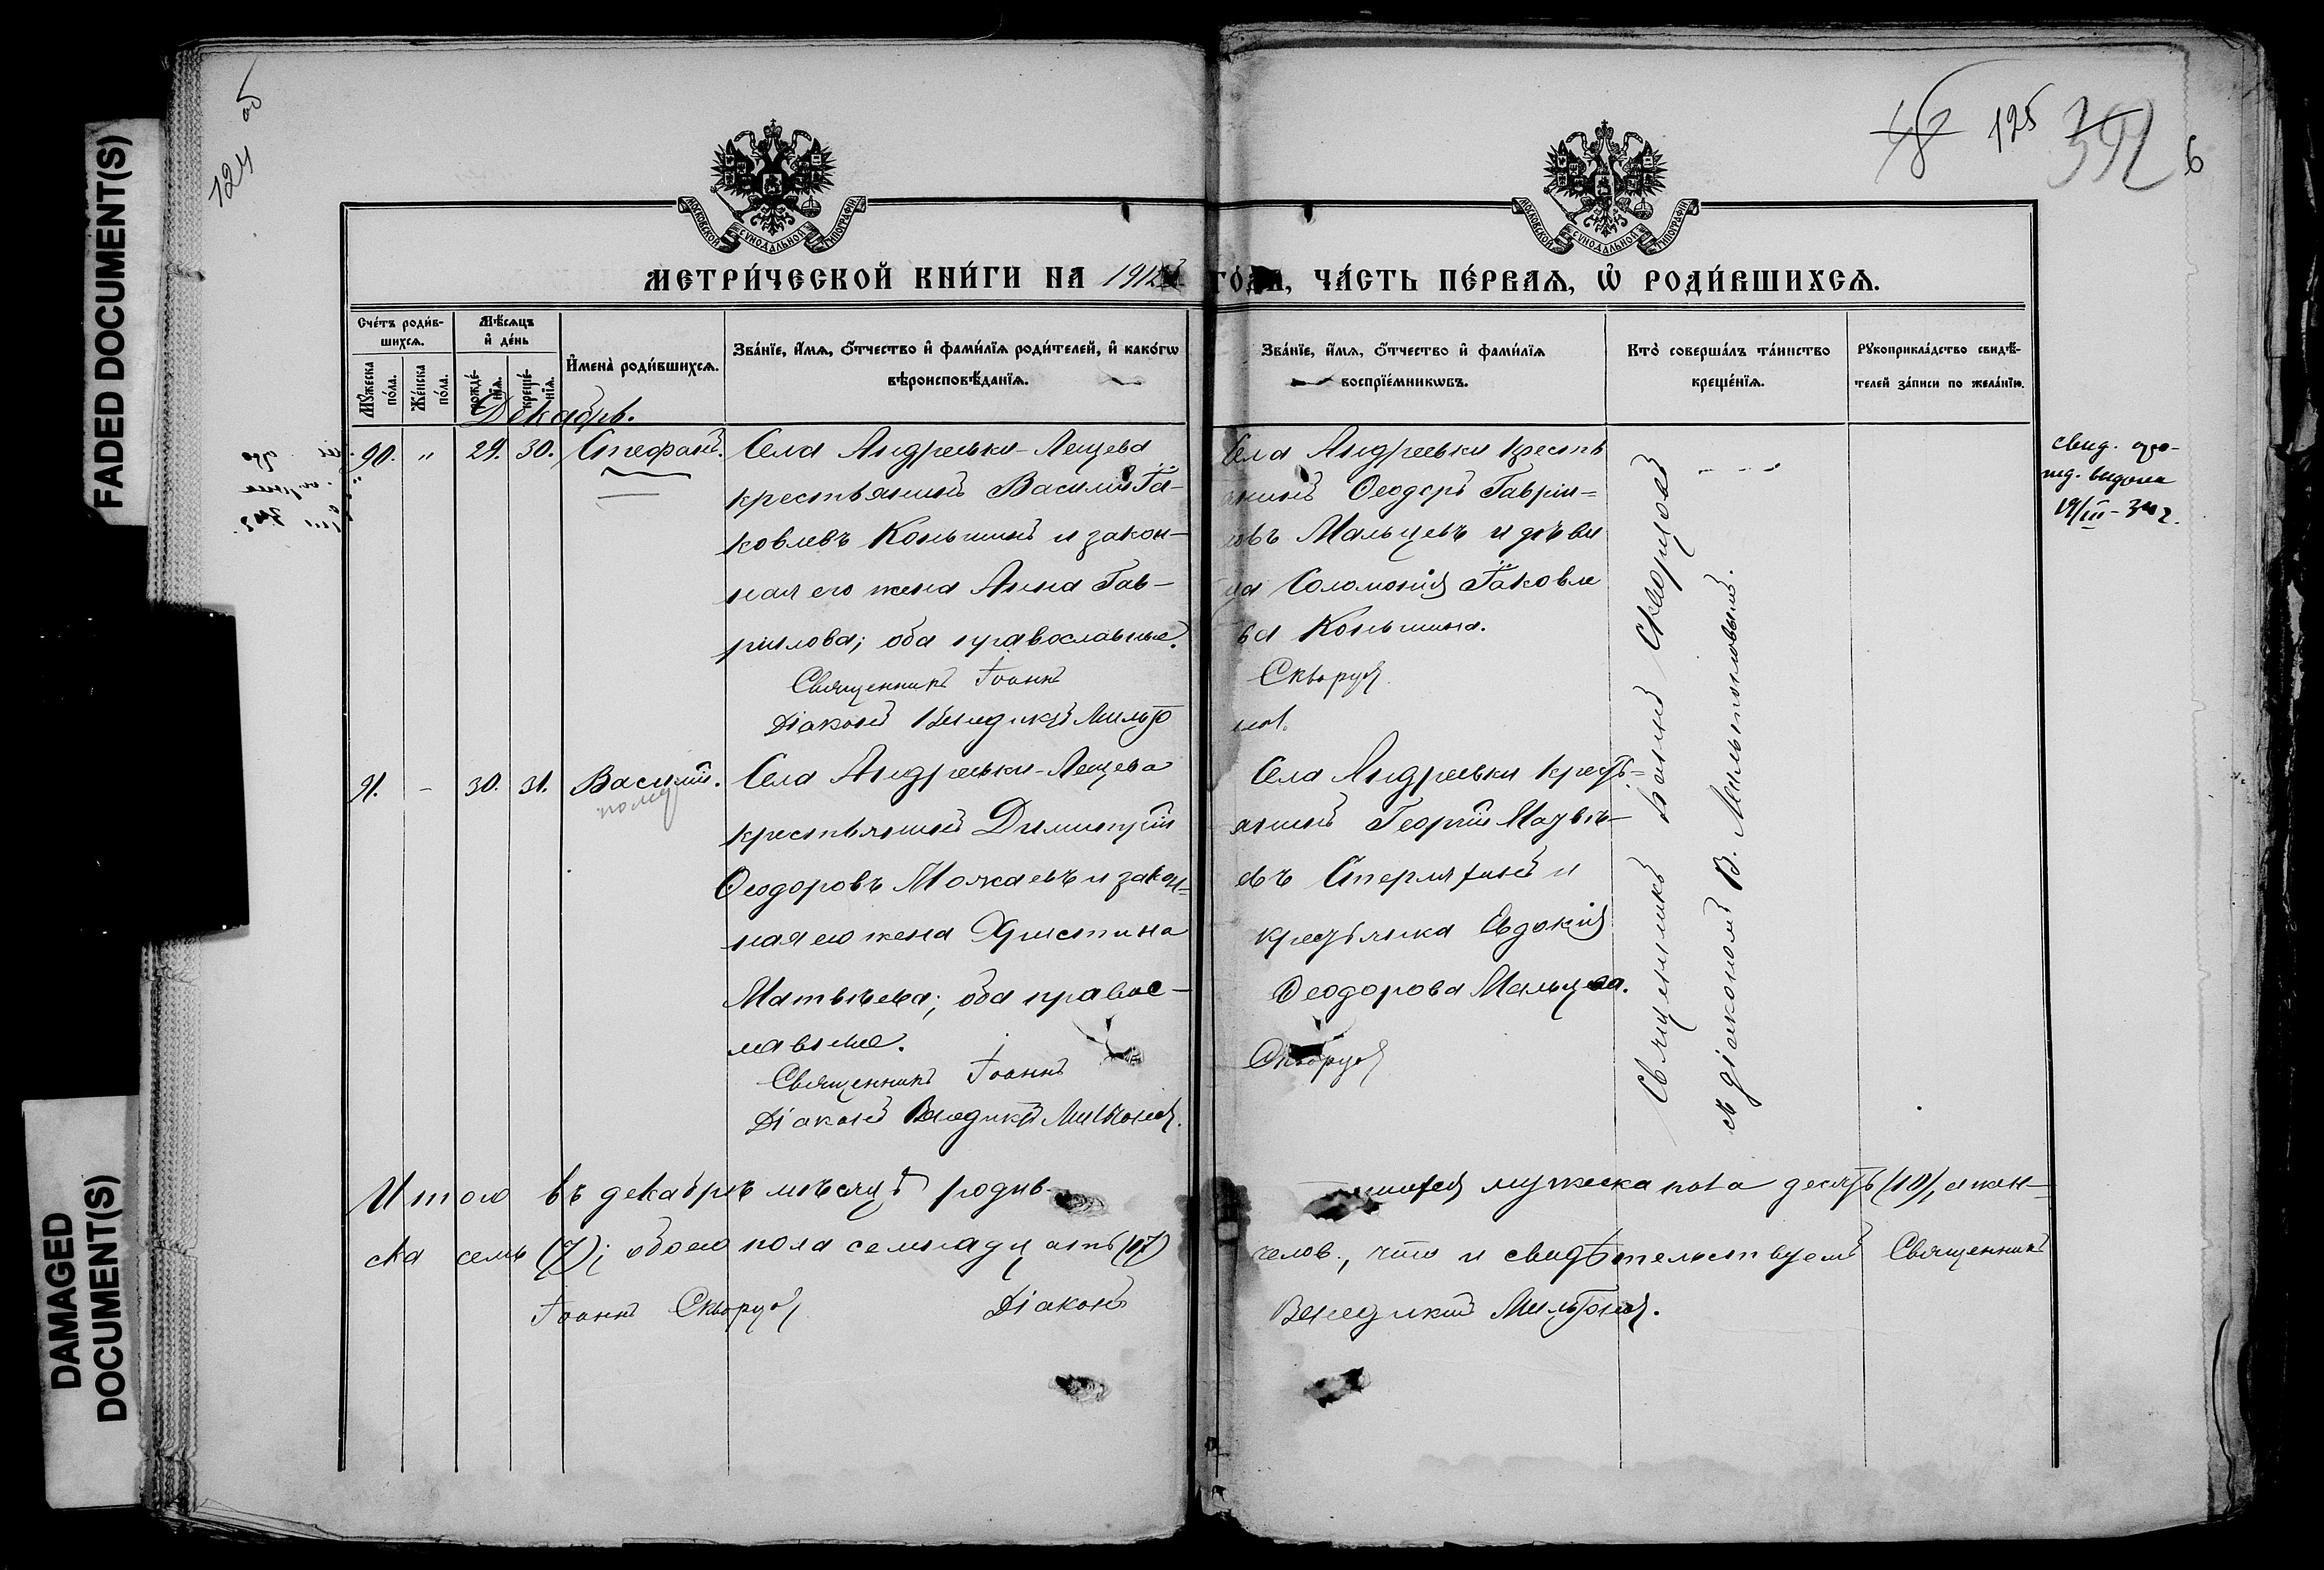 FADED DOCUMENT(S)
DAMAGED DOCUMENT(S)
124 об
125
392
6
МОСКОВСКОЙ СѴНОДАЛЬНОЙ ТИПОГРАФІИ
МОСКОВСКОЙ СѴНОДАЛЬНОЙ ТИПОГРАФІИ
МЕТРИ́ЧЕСКОЙ КНИ́ГИ НА 1912 ГО́ДА, ЧА́СТЬ ПЕ́РВАѦ, Ѡ҆ РОДИ́ВШИХСѦ.
Сче́тъ роди́в-
шихсѧ.
Мꙋ́жеска по́ла.
Же́нска по́ла.
Мѣ́сѧцъ
и҆ де́нь
рожде́-нїѧ.
креще́-нїѧ.
И҆мена̀ роди́вшихсѧ.
Зва́нїе, и҆́мѧ, ѻ҆́тчество и҆ фами́лїѧ роди́телей, и҆ како́гѡ
вѣроисповѣ́данїѧ.
Зва́нїе, и҆́мѧ, ѻ҆́тчество и҆ фами́лїѧ
воспрїе́мникѡвъ.
Кто̀ соверша́лъ та́инство
креще́нїѧ.
Рꙋкоприкла́дство свидѣ́-
телей за́писи по жела́нїю.
Декабрь.
90. " 29. 30. Стефанъ.
Села Андреевки-Лещева
крестьянинъ Василій Іа-
ковлевъ Коньшинъ и закон-
ная его жена Анна Гав-
рилова; оба православные.
Священникъ Іоаннъ
Діаконъ Венедиктъ Мильто
Села Андреевки кресть
янинъ Ѳеодоръ Гаврии=
ловъ Мальцевъ и дѣви
ца Соломонія Іаковле
ва Коньшина.
Скворцов
нов.
свид. о ро-
жд. выдана
19/III-34 г.
91. - 30. 31. Василій.
Села Андреевки-Лещева
крестьянинъ Димитрій
Ѳеодоровъ Можаевъ и закон=
ная его жена Христина
Матвѣева; оба правос-
лавные.
Священникъ Іоаннъ
Діаконъ Венедиктъ Мильтонов.
Села Андреевки кресть=
янинъ Георгій Матвѣ-
евъ Стерляхинъ и
крестьянка Евдокія
Ѳеодорова Мальцева.
Скворцов
Священникъ Іоаннъ Скворцовъ
съ діакономъ В. Мильтоновымъ.
Итого въ декабрѣ мѣсяцѣ родив-шихся мужеска пола десять (10), а жен-
ска семь (7); обоего пола семнадцать (17) челов., что и свидѣтельствуемъ Священникъ
Іоаннъ Скворцов Діаконъ Венедиктъ Мильтонов.